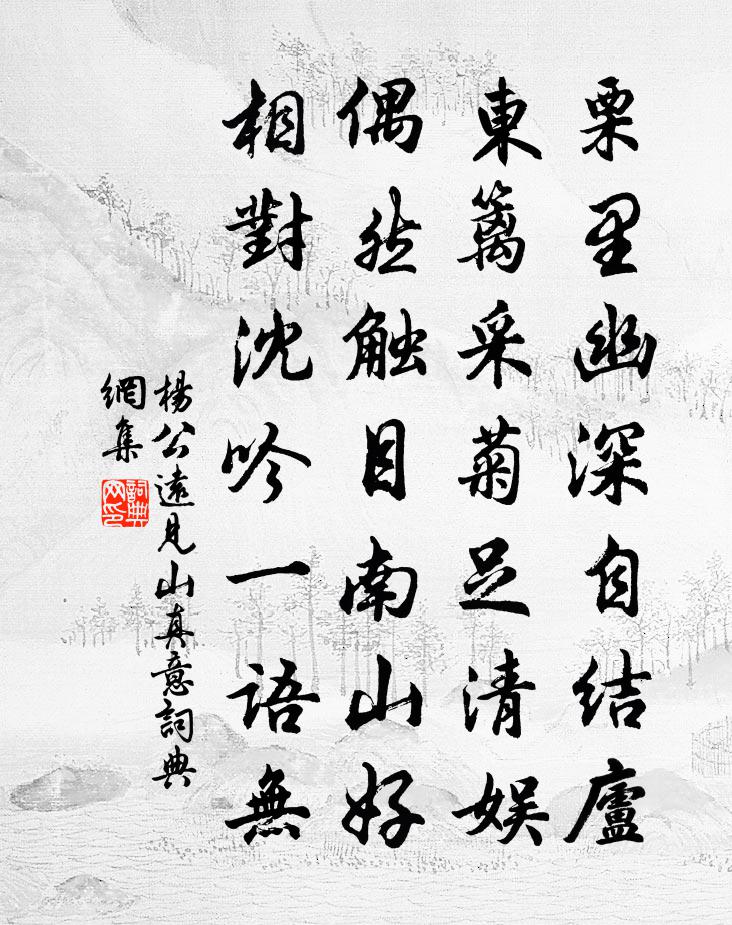 栗里幽深自结廬
東籬采菊足清娛
偶然触目南山好
相對沈吟一语無
楊公遠見山真意詞典
網集
詞典
网印